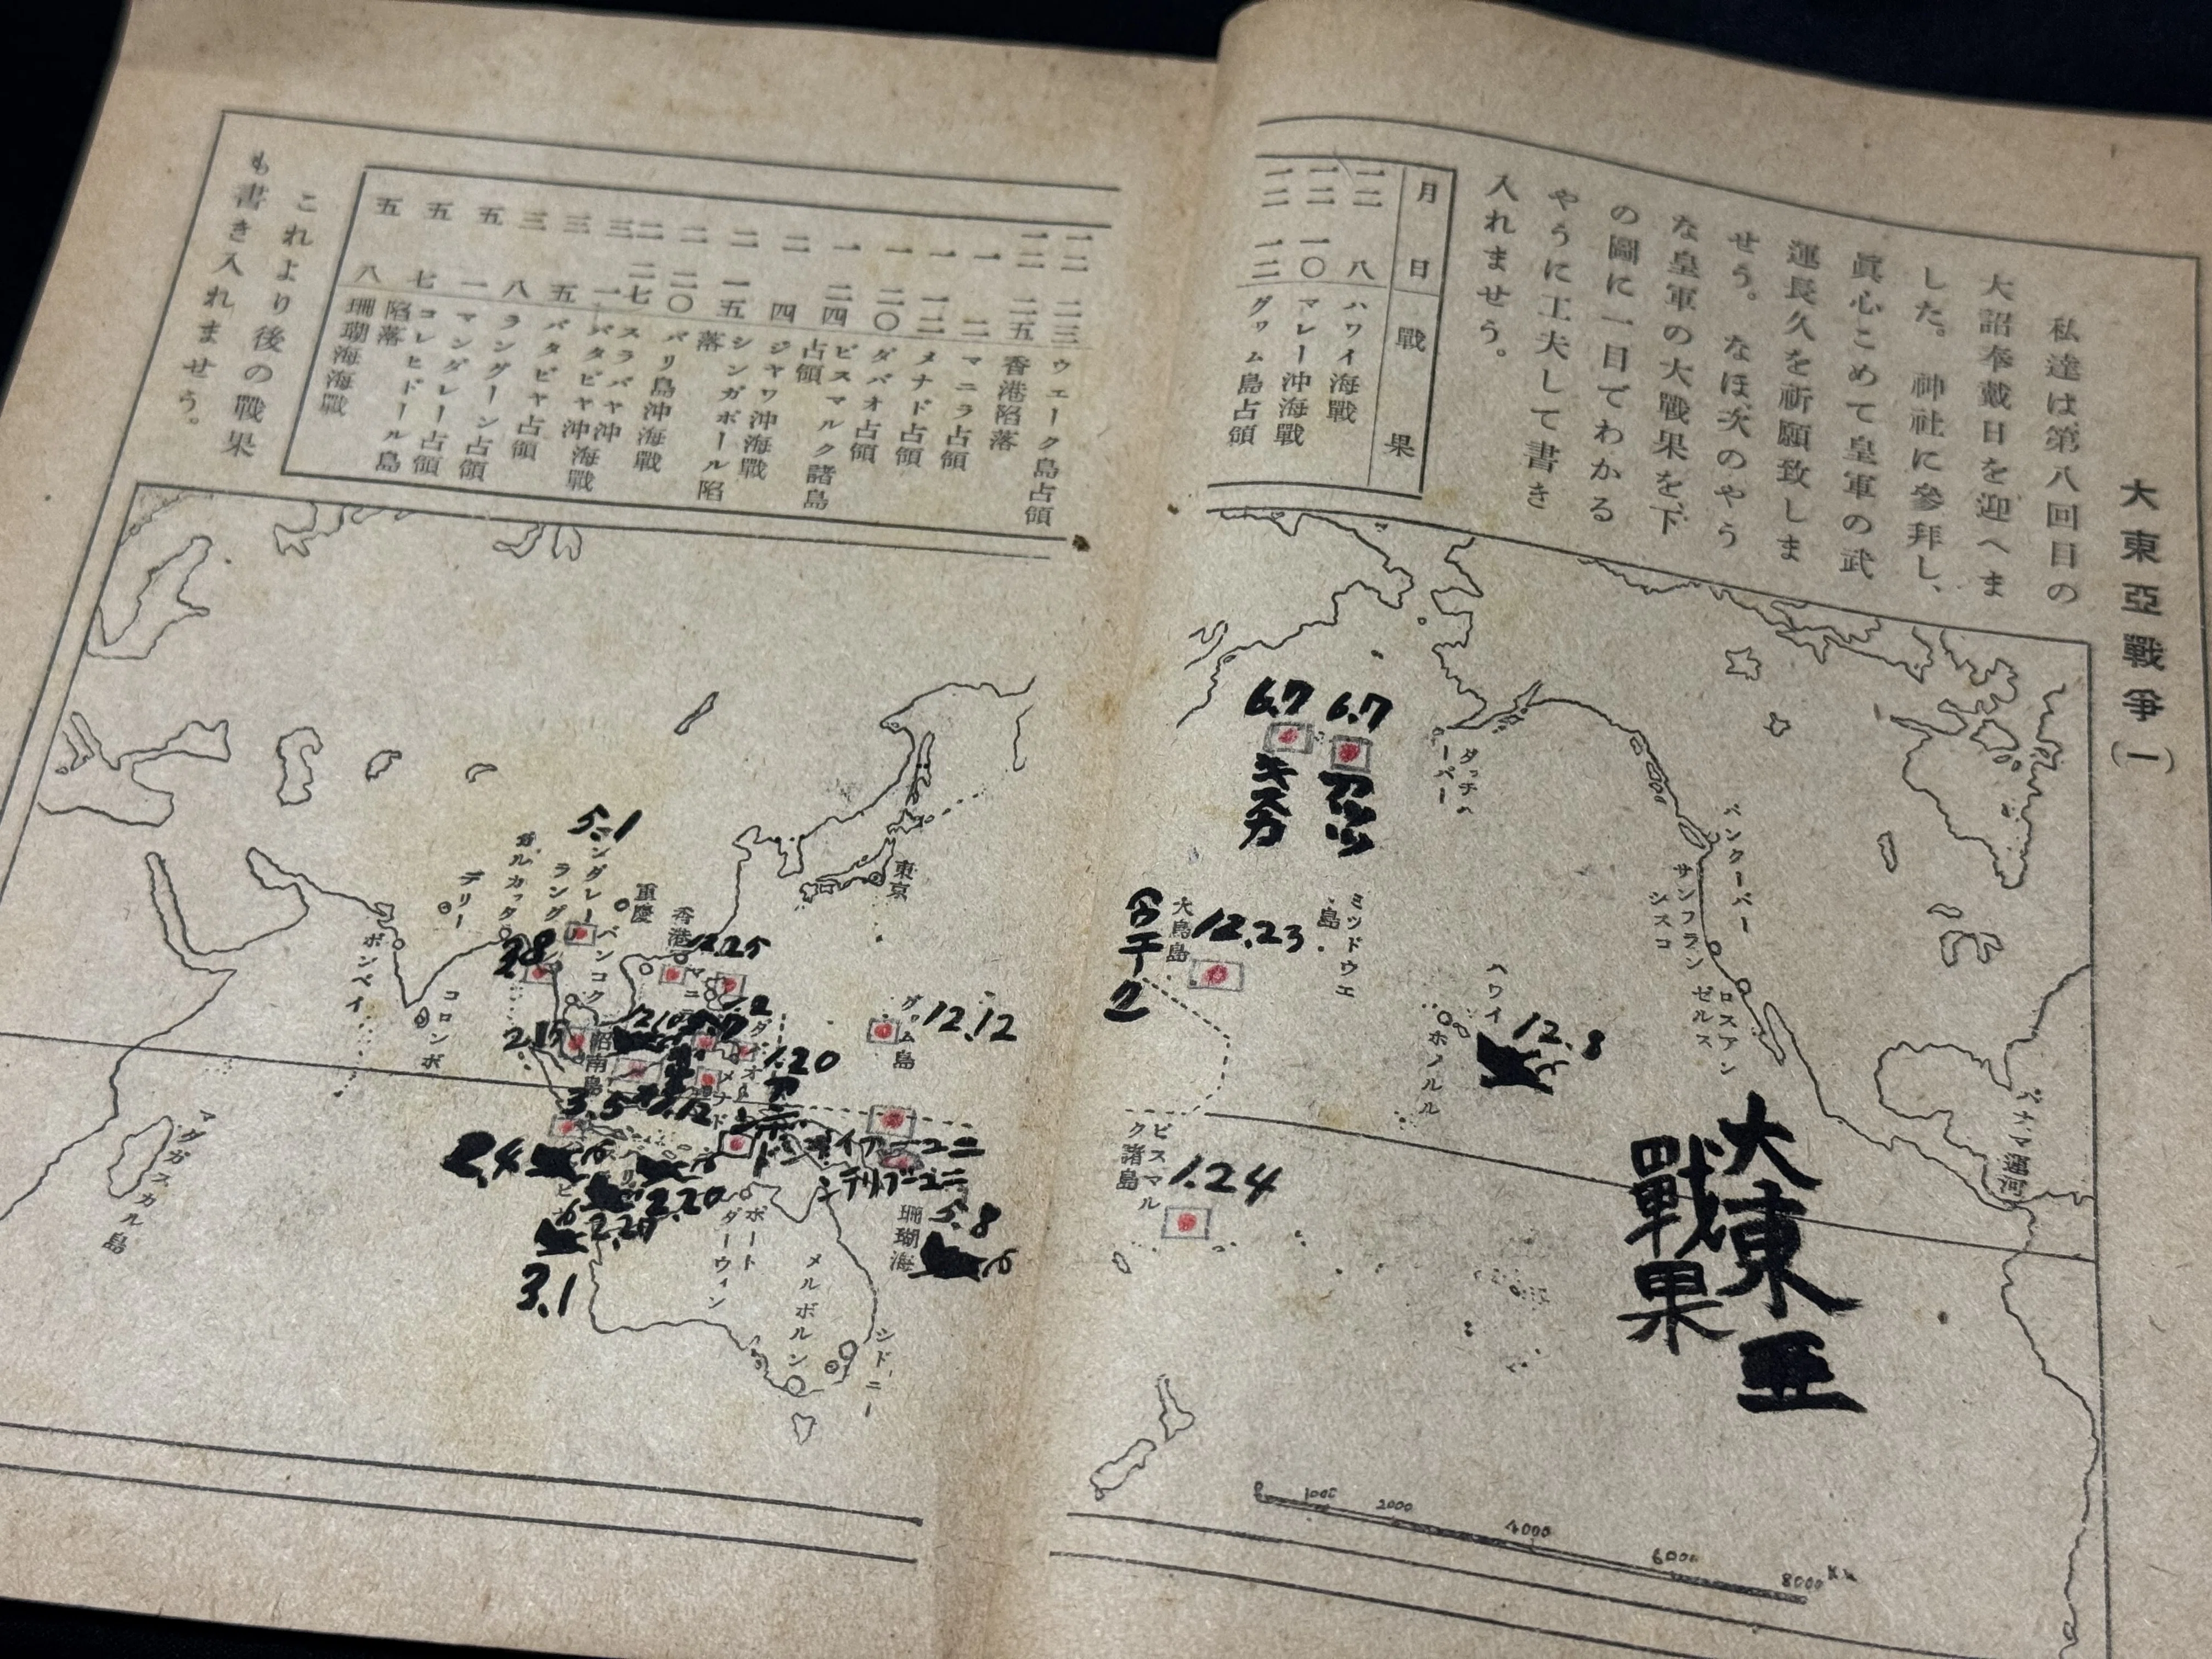 大東亞戰爭(一)
私達は第八回目の
大詔奉戴日を迎へま
した。神社に參拜し、
眞心こめて皇軍の武
運長久を祈願致しま
せう。なほ次のやう
な皇軍の大戰果を下
の圖に一目でわかる
やうに工夫して書き
入れませう。
月 日 戰果
一二 八 ハワイ海戰
一二 一〇 マレー沖海戰
一二 一二 グヮム島占領
一二 二三 ウエーク島占領
一二 二五 香港陷落
一 二 マニラ占領
一 一二 メナド占領
一 二〇 ダバオ占領
一 二四 ビスマルク諸島
占領
二 四 ジヤワ沖海戰
二 一五 シンガポール陷
落
二 二〇 バリ島沖海戰
二 二七 スラバヤ沖
三 一 バタビヤ沖海戰
三 五 バタビヤ占領
三 八 ラングーン占領
五 一 マンダレー占領
五 七 コレヒドール島
陷落
五 八 珊瑚海海戰
これより後の戰果
も書き入れませう。
6.7
キスカ
6.7
アッツ
ダッチ
ハーバー
バンクーバー
サンフラン
シスコ
ロスアン
ゼルス
パナマ運河
ミッドウエ
島
大鳥島
12.23
ウェーク
ハワイ
ホノルル
12.8
ビスマル
ク諸島
1.24
大東亞
戰果
0 1000 2000 4000 6000 8000
東京
重慶
香港
12.25
5.1
カルカッタ
デリー
ボンベイ
コロンボ
バンコク
3.8
2.15
昭南島
グヮム島
12.12
1.20
3.5
2.4
2.20
3.1
珊瑚海
5.8
ポート
ダーウィン
メルボルン
シドニー
マダガスカル島